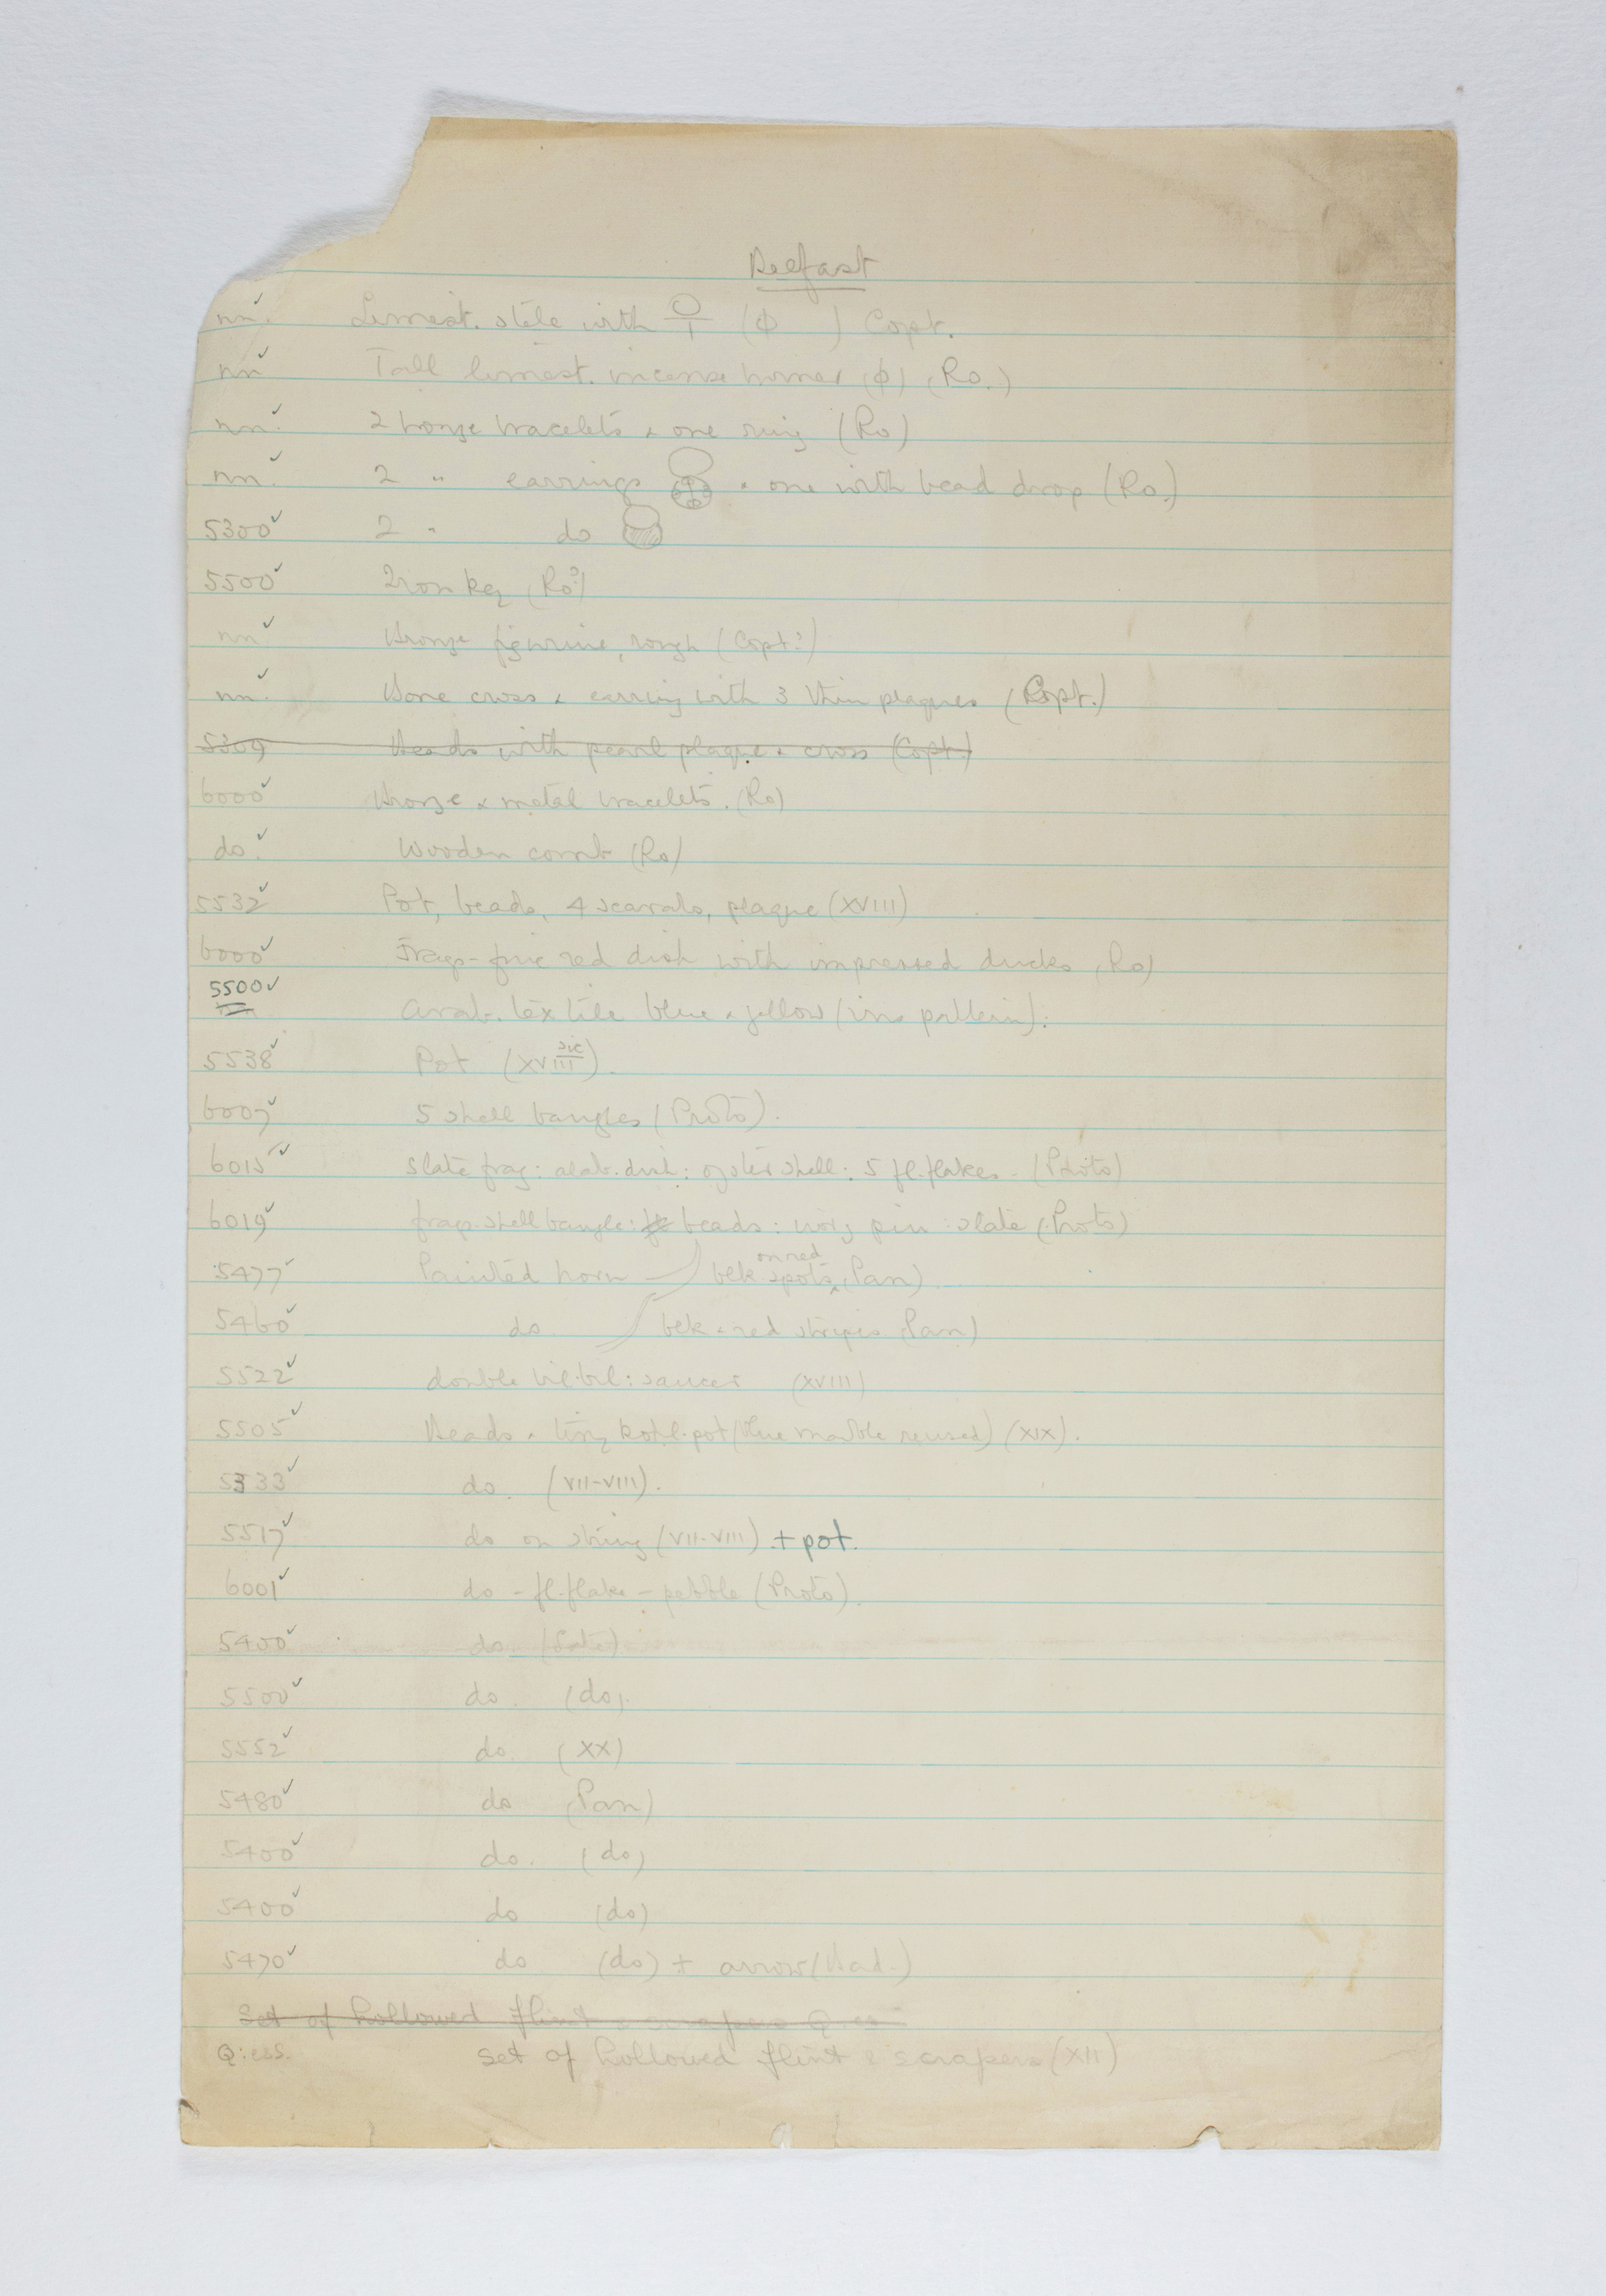 Belfast
nn. ✓ Limest. stele with (ϕ ) Copt.
nn ✓ Tall limest. incense burner (ϕ) (Ro.)
nn. ✓ 2 bronze bracelets & one ring (Ro)
nn. ✓ 2 " earrings & one with bead drop (Ro.)
5300 ✓ 2 " do
5500 ✓ Iron key (Ro?)
nn ✓ Bronze figurine, rough (Copt?)
nn. ✓ Bone cross & earring with 3 thin plaques (Copt.)
5309 Beads with pearl plaque & cross (Copt.)
6000 ✓ Bronze & metal bracelets. (Ro)
do. ✓ Wooden comb (Ro)
5532 ✓ Pot, beads, 4 scarabs, plaque (XVIII)
6000 ✓ Frags - fine red dish with impressed ducks (Ro)
5500 ✓ Arab. textile blue & yellow (ins pattern).
5538 ✓ Pot (XVIII sic).
6007 ✓ 5 shell bangles (Proto).
6015 ✓ slate frag: alab. dish: oyster shell: 5 fl. flakes - (Proto)
6019 ✓ frag. shell bangle: beads: ivory pin: slate (Proto)
5477 ✓ Painted horn — blk spots on red (Pan)
5460 ✓ do blk & red stripes (Pan)
5522 ✓ double bil-bil: saucer (XVIII)
5505 ✓ Beads & tiny kohl-pot (blue marble reused) (XIX).
5333 ✓ do. (VII-VIII).
5517 ✓ do on string (VII-VIII) + pot.
6001 ✓ do - fl. flake - pebble (Proto).
5400 ✓ do.
5500 ✓ do. (do).
5552 ✓ do. (XX)
5480 ✓ do (Pan)
5400 ✓ do. (do)
5400 ✓ do (do)
5470 ✓ do (do) + arrow (Bad.)
Set of hollowed flint & scrapers Q
Q: set of hollowed flint & scrapers (XII)